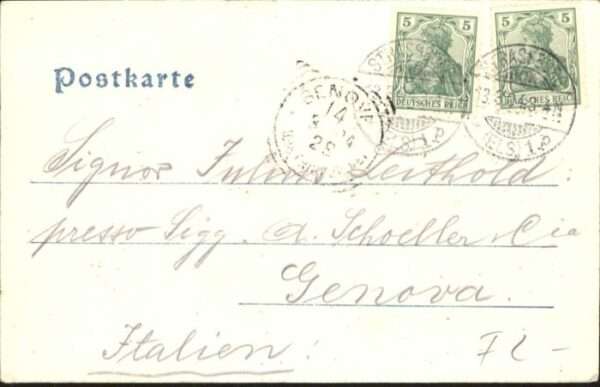 5 5
5 5
DEUTSCHES REICH
DEUTSCHES REICH
Postkarte
GENOVA
14
Signor Julius Leithold:
presso Sigg. A. Schoeller & Cia
Genova.
Italien: